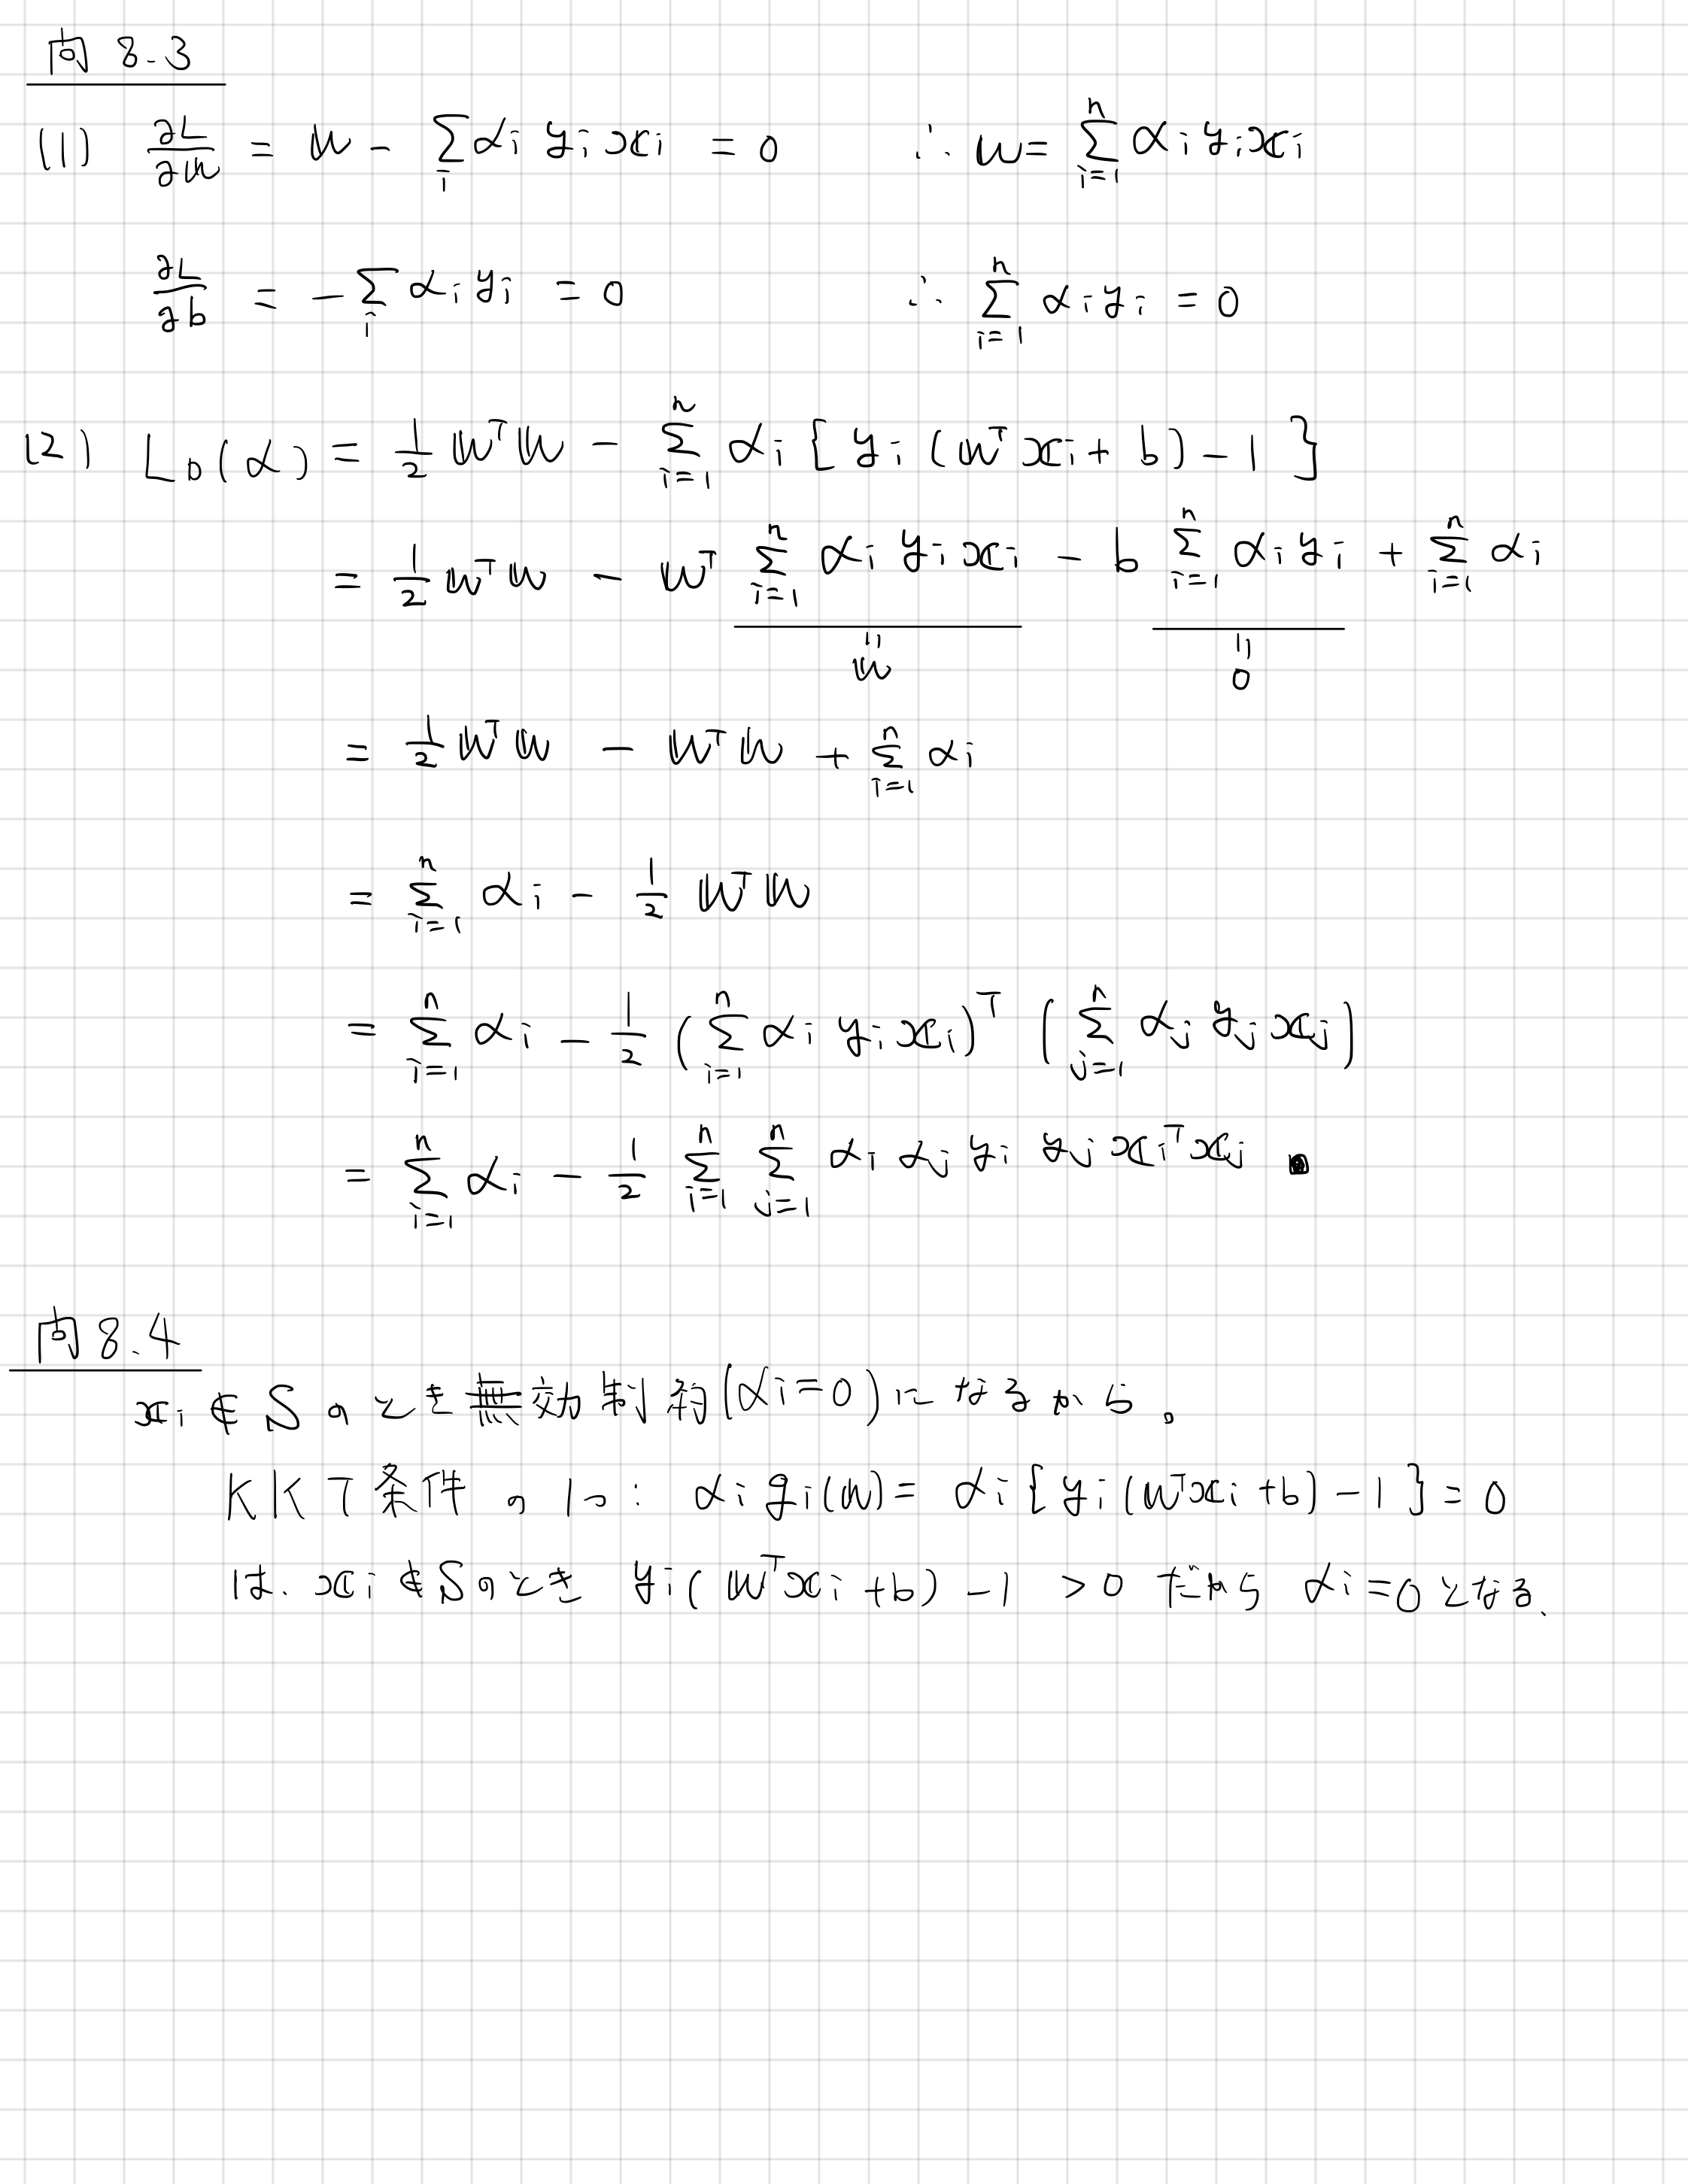 問 8.3
(1) ∂L/∂w = w - Σ_i α_i y_i x_i = 0 ∴ w = Σ_{i=1}^n α_i y_i x_i
∂L/∂b = -Σ_i α_i y_i = 0 ∴ Σ_{i=1}^n α_i y_i = 0
(2) L_D(α) = 1/2 w^T w - Σ_{i=1}^n α_i [ y_i (w^T x_i + b) - 1 }
= 1/2 w^T w - w^T Σ_{i=1}^n α_i y_i x_i - b Σ_{i=1}^n α_i y_i + Σ_{i=1}^n α_i
= w = 0
= 1/2 w^T w - w^T w + Σ_{i=1}^n α_i
= Σ_{i=1}^n α_i - 1/2 w^T w
= Σ_{i=1}^n α_i - 1/2 (Σ_{i=1}^n α_i y_i x_i)^T (Σ_{j=1}^n α_j y_j x_j)
= Σ_{i=1}^n α_i - 1/2 Σ_{i=1}^n Σ_{j=1}^n α_i α_j y_i y_j x_i^T x_j
問 8.4
x_i ∉ S のとき無効制約(α_i=0)になるから。
KKT条件の1つ: α_i g_i(w) = α_i { y_i (w^T x_i + b) - 1 } = 0
は、x_i ∉ S のとき y_i ( w^T x_i + b) - 1 > 0 だから α_i = 0 となる、